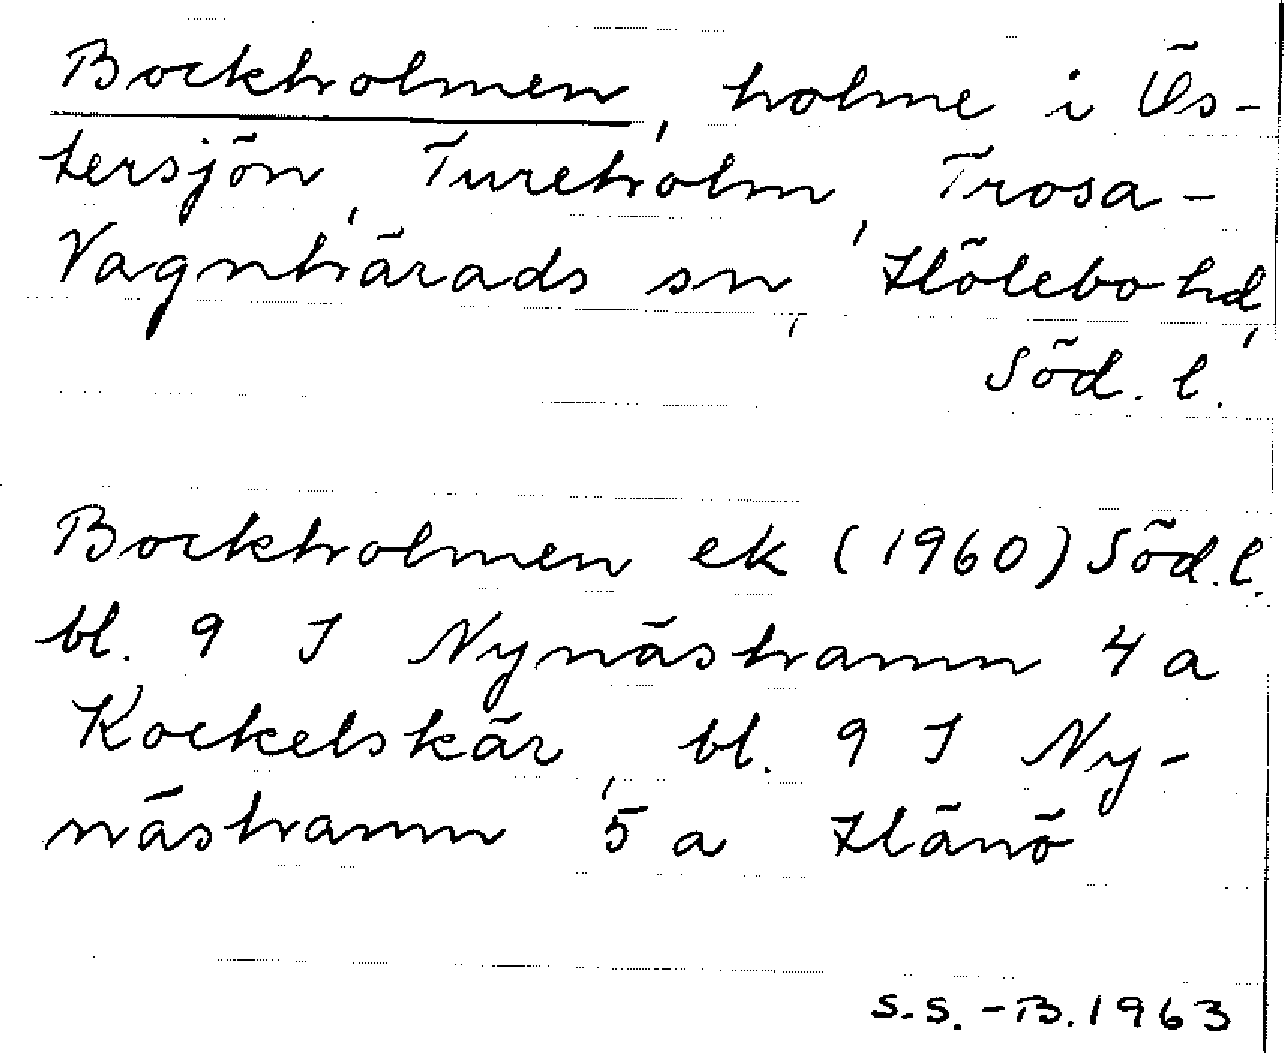 Bockholmen, holme i Ös-
tersjön, Tureholm, Trosa-
Vagnhärads sn, Hölebo hd,
Söd. l.
Bockholmen ek (1960) Söd. l.
bl. 9 I Nynäshamn 4 a
Kockelskär, bl. 9 I Ny-
näshamn 5 a Hänö
S.S.-B. 1963